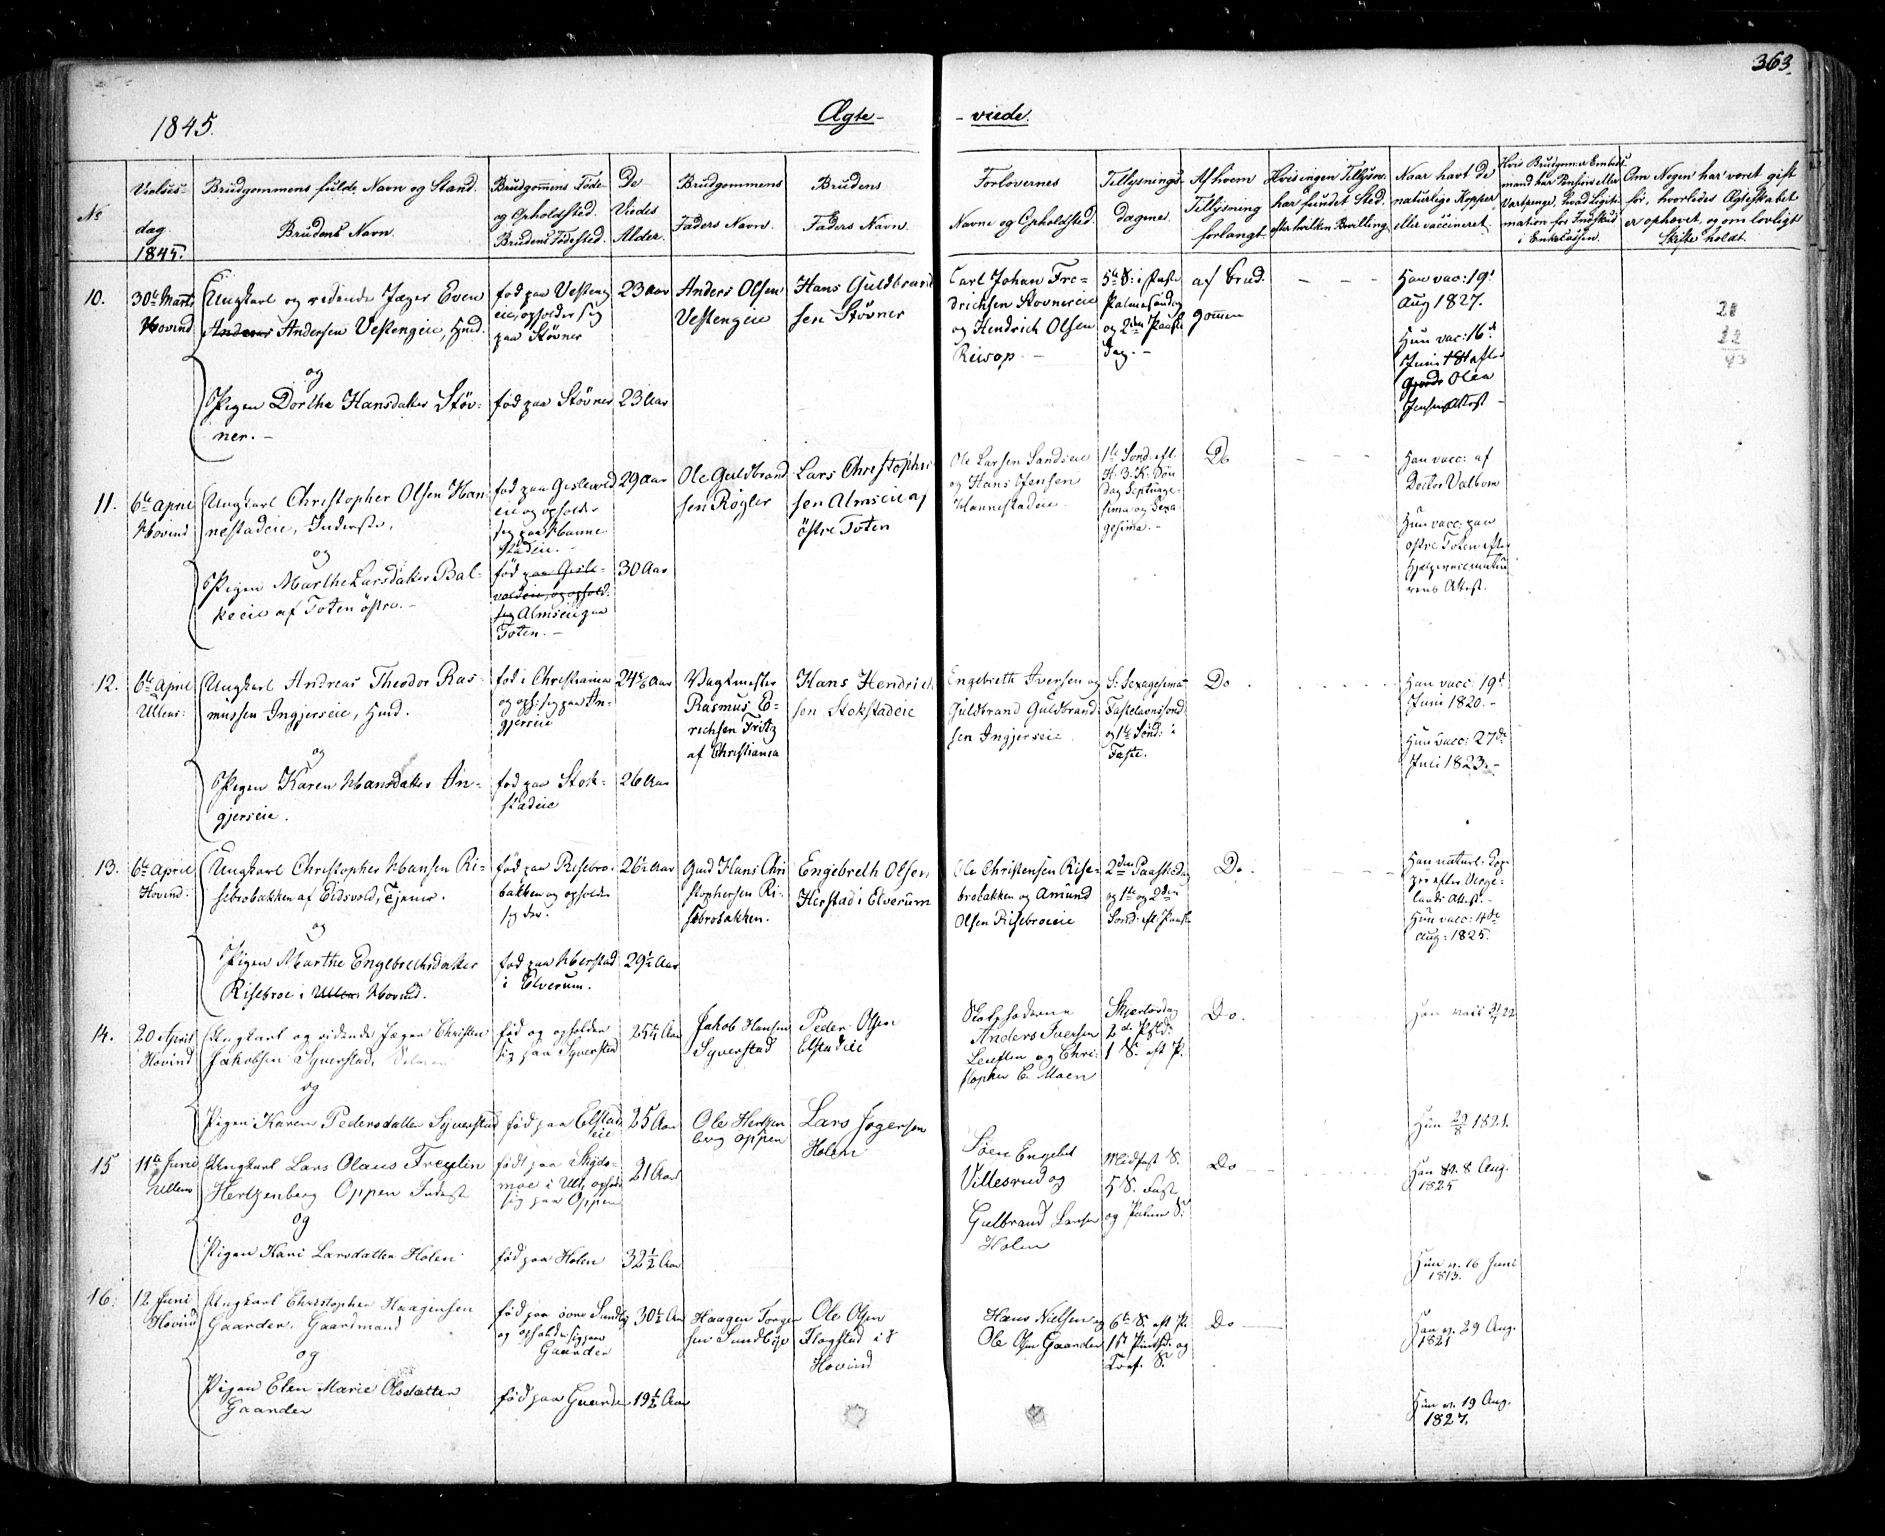 363.
1845.
Ægte-
- viede.
No
Vielses-
dag.
1845.
Brudgommens fulde Navn og Stand.
Brudens Navn.
Brudgommens Føde-
og Opholdsted.
Brudens Fødested.
De
Viedes
Alder.
Brudgommens
Faders Navn.
Brudens
Faders Navn.
Forlovernes
Navne og Opholdsted.
Tillysnings-
dagene.
Af hvem
Tillysning
forlangt.
Hvis ingen Tillysn.
har fundet Sted,
efter hvilken Bevilling.
Naar havt de
naturlige Kopper
eller vaccineret.
Hvis Brudgom. er Embeds-
mand har Pension eller
Vartpenge, hvad Legiti-
mation for Indskud
i Enkekassen.
Om Nogen har været gift
før, hvorledes Ægteskabet
er ophævet, og om lovligt
Skifte holdt.
10.
30te Marts
Hovind
Ungkarl og ridende Jæger Even
Andersen Vestengeie, Huusm.
og
Pigen Dorthe Hansdatter Støv-
ner. -
fød paa Vesteng
eie, opholder sig
paa Støvner
fød paa Støvner
23 Aar
23 Aar
Anders Olsen
Vestengeie
Hans Guldbrand
sen Støvner
Carl Johan Fre-
drichsen Støvnereie
og Hendrich Olsen
Riisop. -
5te S: i Faste
Palmesøndag
og 2den Paaske
dag. -
af Brud
gommen
Han vac: 19d
Aug 1827.
Hun vac: 16de
Juni
Olea
Jensens Attest -
28
22
11.
6te April
Hovind
Ungkarl Christopher Olsen Han
nestadeie, Inderste,
og
Pigen Marthe Larsdatter Bal-
keeie af Toten østre. -
fød paa Gislevold
eie og opholder
sig paa Hanne
stadeie. -
fød paa Gisle-
voldeie, og ophold.
sig Almseie paa
Toten. -
29 Aar
30 Aar
Ole Guldbrand
sen Røgler
Lars Christopher
sen Almseie af
østre Toten
Ole Larsen Sandseie
og Hans Jensen
Hannestadeie.
1te Sønd. eft.
H. 3. K. Søn
dag Septuage-
sima og Sexa
gesima. -
Do
Han vacc: af
Doctor Valborn
Hun vacc: paa
østre Toten efter
Hjelpevaccinateu
rens Attest.
12.
6te April
Ullens:
Ungkarl Andreas Theodor Ras-
mussen Ingjerseie, Huusm.
og
Pigen Karen Hansdatter In-
gjerseie.
fød i Christiania
og oph: sig paa In-
gjerseie
fød paa Stok-
stadeie
24 Aar
26 Aar
Vagtmester
Rasmus E-
richsen Fritz
af Christiania
Hans Hendrich
sen Stokstadeie
Engebreth Iversen og
Guldbrand Guldbrand-
sen Ingjerseie.
S: Sexagesima
Fastelavnssønd
og 1te Sønd: i
Faste.
Do
Han vacc: 19d
Juni 1820. -
Hun vacc: 27de
Juli 1823. -
13.
6te April
Hovind.
Ungkarl Christopher Hansen Ri-
sebrobakken af Eidsvold, Tjener.
og
Pigen Marthe Engebrethsdatter
Risebroe i Ullens Hovind.
fød paa Risebro-
bakken og opholder
sig der.
fød paa Herstad
i Elverum.
26½ Aar
29½ Aar
Gmd Hans Chri
stophersen Ri-
sebrobakken.
Engebreth Olsen
Herstad i Elverum
Ole Christensen Rise-
brobakken og Amund
Olsen Risebroeie
2den Paaskedag
og 1te og 2den
Sønd: eft. Paaske
Do.
Han naturl. Kop-
per efter Verge-
lands Attest. -
Hun vacc: 4de
Aug: 1825.
14.
20 April
Hovind
Ungkarl og ridende Jæger Christen
Jakobsen Syverstad,
og
Pigen Karen Pedersdatter Syverstad
fød og opholder
sig paa Syverstad
fød paa Elstad
eie
25¼ Aar
25 Aar
Jakob Hansen
Syverstad
Peder Olsen
Elstadeie
Anders Iversen
og Chri-
stopher E. Moen
Skjertorsdag
2de Pskd:
1 S. eft P.
Do.
Han vacc
Hun 29/8 1821.
15
11te Juni
Ullens
Ungkarl Lars Olaus Freylin
Hertzenberg Oppen Inderst
og
Pigen Kari Larsdatter Holen
født paa Skjds-
moe i Ull, opholder
sig paa Oppen
fød paa Holen
21 Aar
32½ Aar
Ole Hertzen
berg Oppen
Lars Jogersen
Holen
Søren Engebret
Villesrud og
Gulbrand Larsen
Holen
Midfast S.
5 S. Fast.
og Palme S.
Do
Han v. 8 Aug.
1825
Hun v. 16 Juni
1813.
16.
12 Juni
Hovind
Ungkarl Christopher Haagensen
Gaarder. Gaardmand
og
Pigen Elen Marie Olsdatter
Gaarder
fød paa øvre Sundby
og opholder sig paa
Gaarder
fød paa Gaarder
30½ Aar
19½ Aar
Haagen Torger
sen Sundbye
Ole Olsen
Flagstad i
Hovind
Hans Nielsen og
Ole Olsen Gaarder
6te S. eft P.
1st Pintsd. og
Tref. S.
Do
Han v. 29 Aug.
1821
Hun v. 19 Aug.
1827.